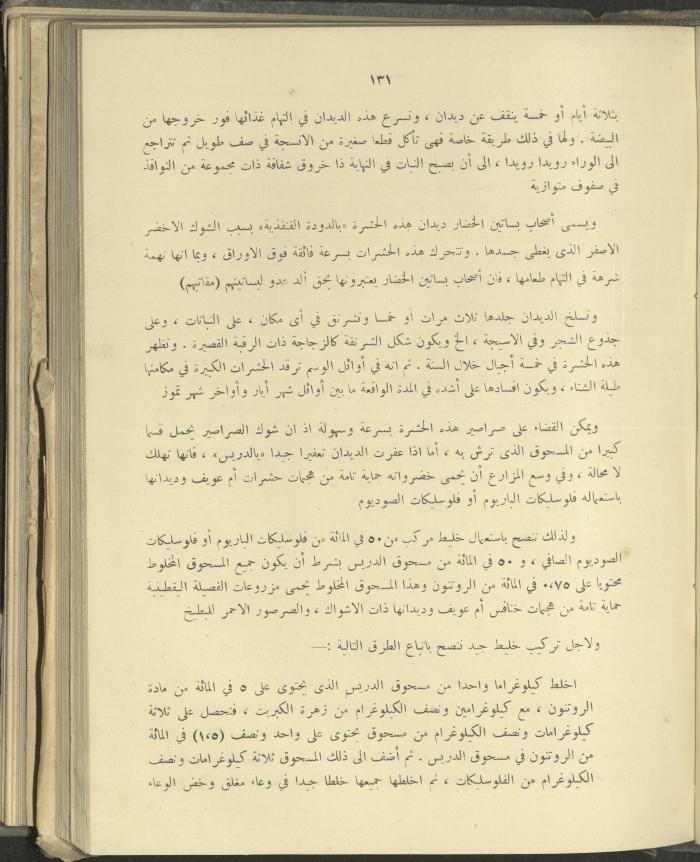 ١٣١
بثلاثة أيام أو خمسة ينقف عن ديدان ، وتسرع هذه الديدان في التهام غذائها فور خروجها من
البيضة . ولها في ذلك طريقة خاصة فهى تأكل قطعا صغيرة من الانسجة في صف طويل ثم تتراجع
الى الوراء رويدا رويدا ، الى أن يصبح النبات في النهاية ذا خروق شفافة ذات مجموعة من النوافذ
في صفوف متوازية
ويسمى أصحاب بساتين الخضار ديدان هذه الحشرة «بالدودة القنفذية» بسبب الشوك الاخضر
الاصفر الذى يغطى جسدها . وتتحرك هذه الحشرات بسرعة فائقة فوق الاوراق ، وبما انها نهمة
شرهة في التهام طعامها ، فان أصحاب بساتين الخضار يعتبرونها بحق ألد عدو لبساتينهم (مقاثيهم)
وتسلخ الديدان جلدها ثلاث مرات أو خمسا وتشرنق في أى مكان ، على النباتات ، وعلى
جذوع الشجر وفي الاسيجة ، الخ ويكون شكل الشرنقة كالزجاجة ذات الرقبة القصيرة . وتظهر
هذه الحشرة في خمسة أجيال خلال السنة . ثم انه في أوائل الوسم ترقد الحشرات الكبيرة في مكامنها
طيلة الشتاء ، ويكون افسادها على أشده في المدة الواقعة ما بين أوائل شهر أيار وأواخر شهر تموز
ويمكن القضاء على صراصير هذه الحشرة بسرعة وسهولة اذ ان شوك الصراصير يحمل قسما
كبيرا من المسحوق الذى ترش به ، أما اذا عفرت الديدان تعفيرا جيدا «بالدريس» ، فانها تهلك
لا محالة ، وفي وسع المزارع أن يحمى خضرواته حماية تامة من هجمات حشرات أم عويف وديدانها
باستعماله فلوسليكات الباريوم أو فلوسليكات الصوديوم
ولذلك ننصح باستعمال خليط مركب من ٥٠ في المائة من فلوسليكات الباريوم أو فلوسليكات
الصوديوم الصافي ، و ٥٠ في المائة من مسحوق الدريس بشرط أن يكون جميع المسحوق المخلوط
محتويا على ٠،٧٥ في المائة من الروتنون وهذا المسحوق المخلوط يحمى مزروعات الفصيلة اليقطينية
حماية تامة من هجمات خنافس أم عويف وديدانها ذات الاشواك ، والصرصور الاحمر للبطيخ
ولاجل تركيب خليط جيد ننصح باتباع الطرق التالية :—
اخلط كيلوغراما واحدا من مسحوق الدريس الذى يحتوى على ٥ في المائة من مادة
الروتنون ، مع كيلوغرامين ونصف الكيلوغرام من زهرة الكبريت ، فتحصل على ثلاثة
كيلوغرامات ونصف الكيلوغرام من مسحوق يحتوى على واحد ونصف (١،٥) في المائة
من الروتنون في مسحوق الدريس . ثم أضف الى ذلك المسحوق ثلاثة كيلوغرامات ونصف
الكيلوغرام من الفلوسليكات ، ثم اخلطها جميعها خلطا جيدا في وعاء مغلق وخض الوعاء